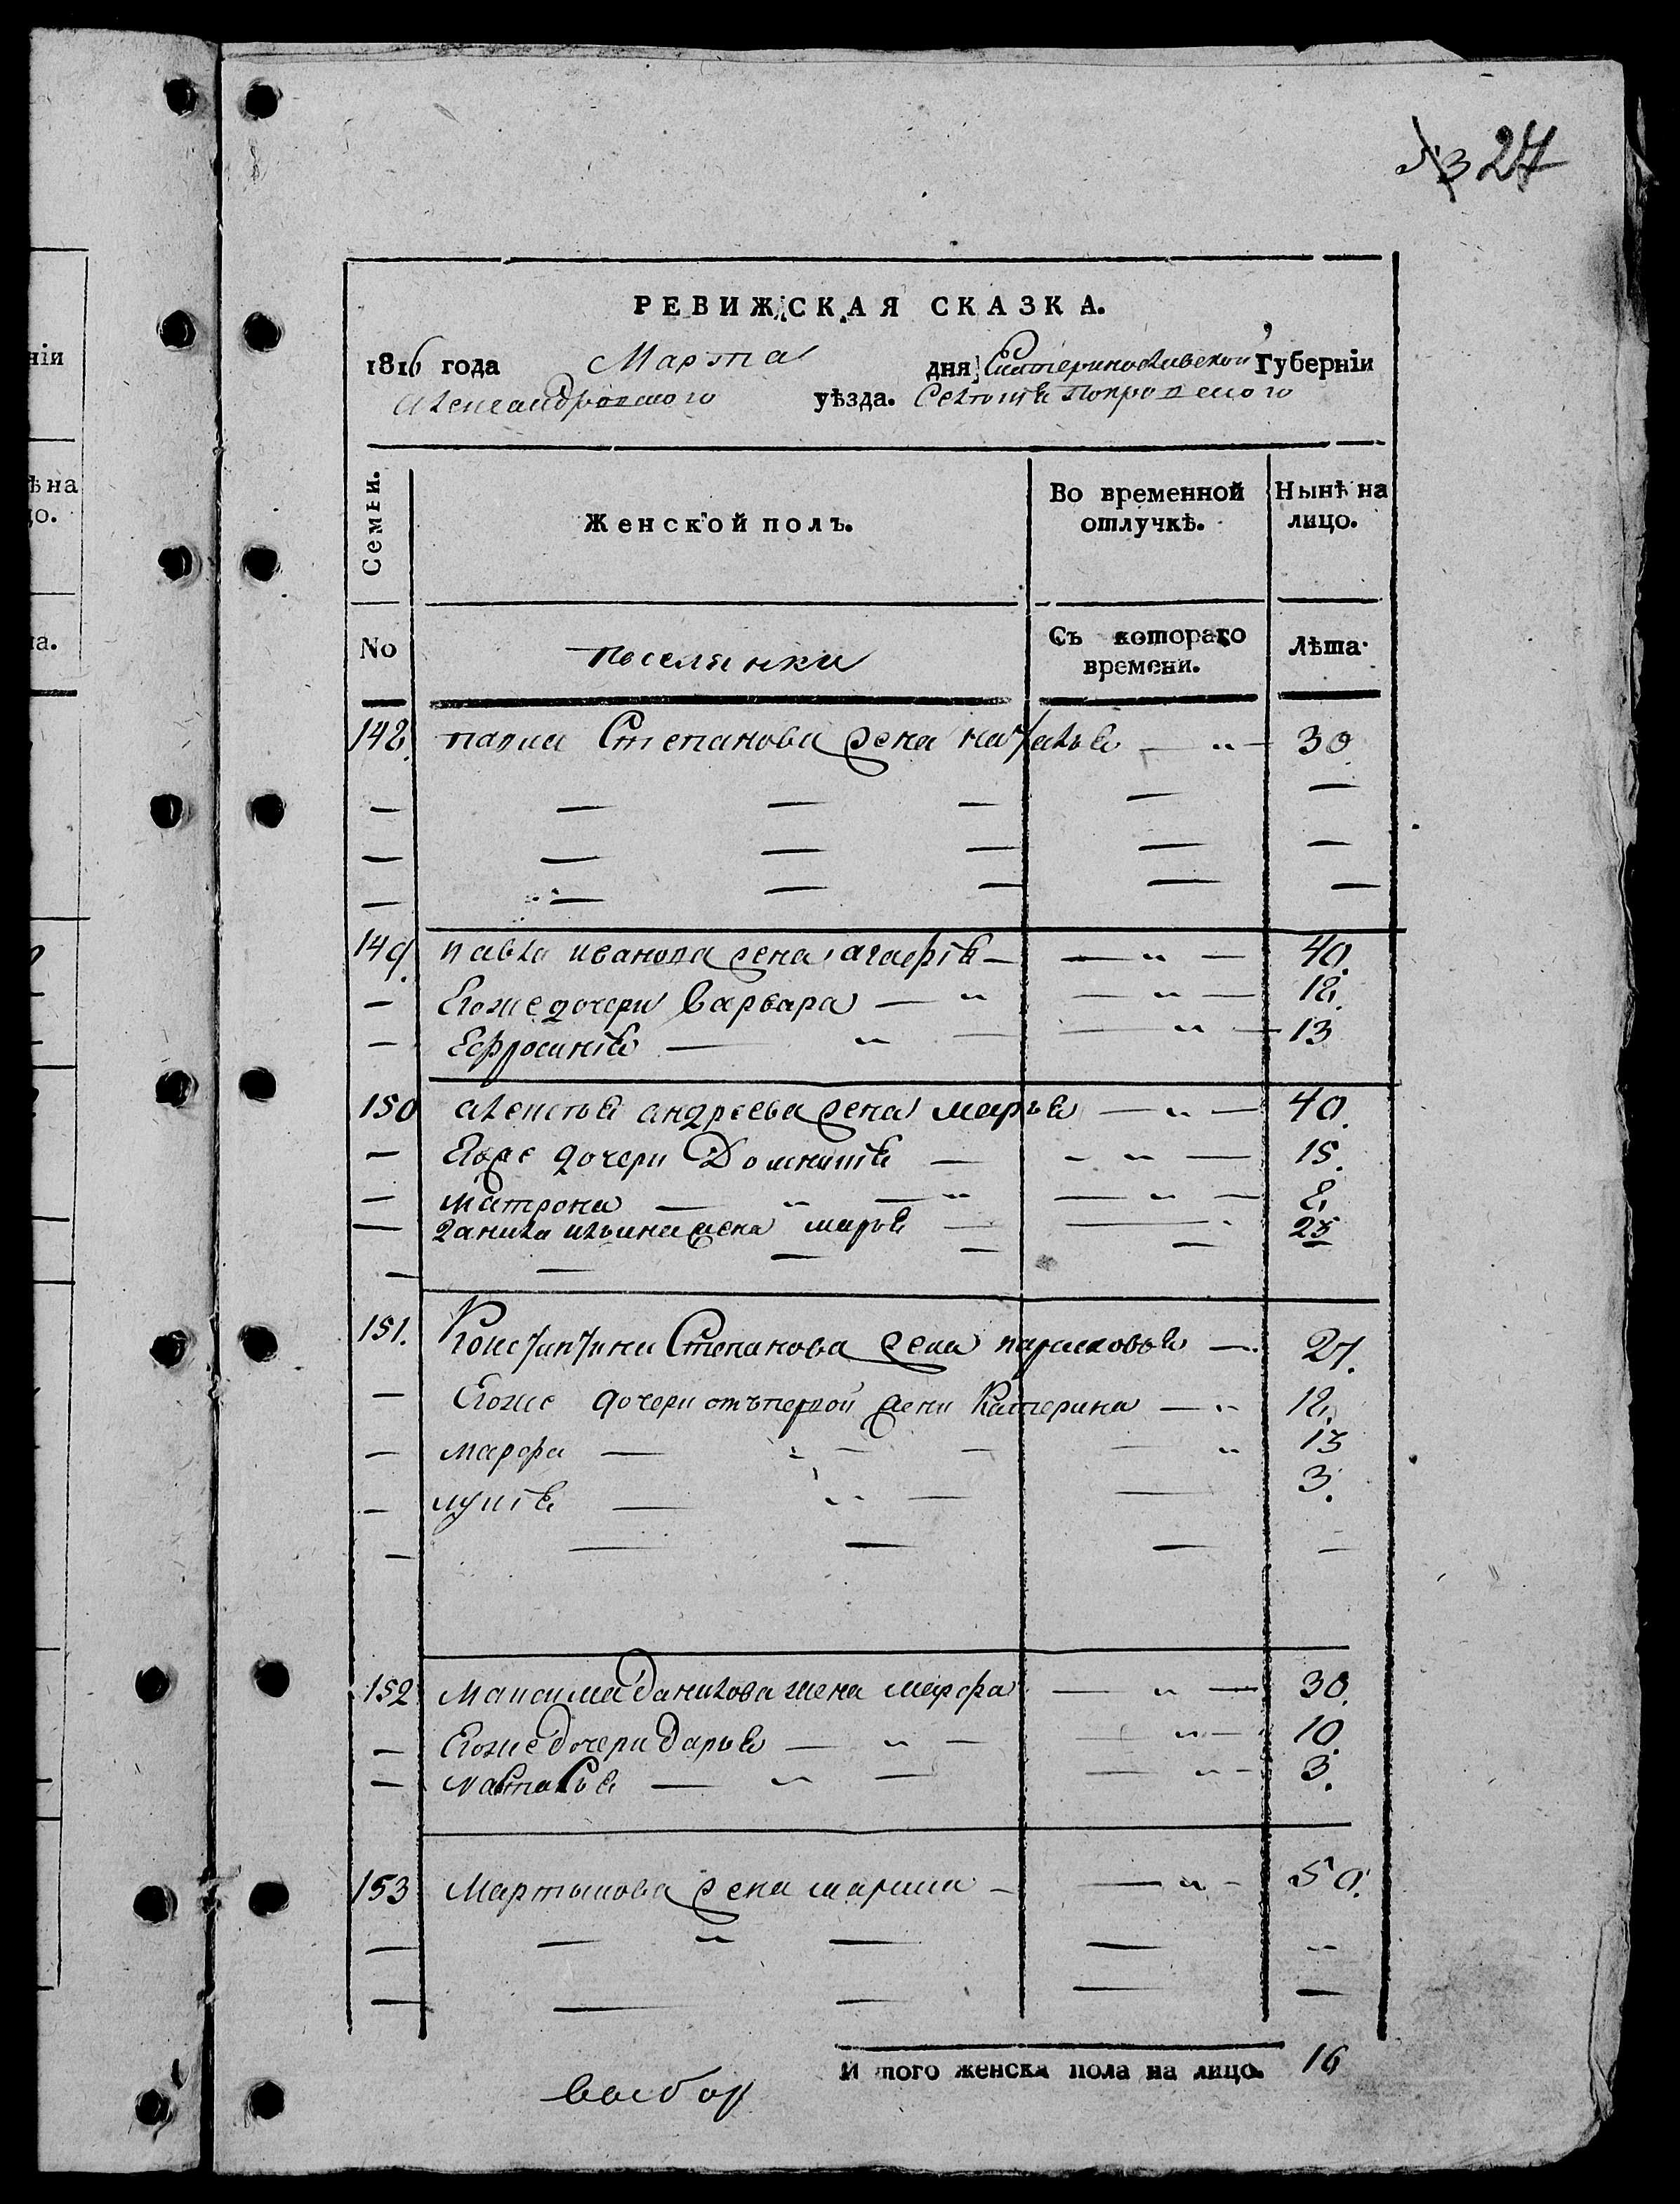 № 27
РЕВИЖСКАЯ СКАЗКА.
1816 года Марта дня Екатеринославской Губерніи
Александровского уѣзда. Селенія Покровского
ніи
ѣ на
цо.
на.
Семьи.
Женской полъ.
Во временной отлучкѣ.
Нынѣ на лицо.
No
Поселянки
Съ котораго времени.
Лѣта.
148. Степанова жена наталья — „ — 30
149. павла иванова жена агафія — „ — 40.
— Егоже дочери варвара — „ — „ — 18.
— Ефросинія — „ — „ — 13
150 алексѣя андреева жена марья — „ — 40.
— Егоже дочери Домникія — „ — 15.
— матрона — „ — „ — „ — 8.
— данила ильина жена марья — 25
151. Константина Степанова жена парасковья — 27.
— Егоже дочери отъ первой жени Катерина — „ 18.
— марфа — „ — „ 13
— лукія — „ — 3.
152 Максима данилова жена марфа — „ — 30.
— Егоже дочери дарья — „ — „ — 10.
— наталья — „ — „ — 3.
153 Мартынова жена марина — „ — 50.
И того женска пола на лицо. 16
выбор